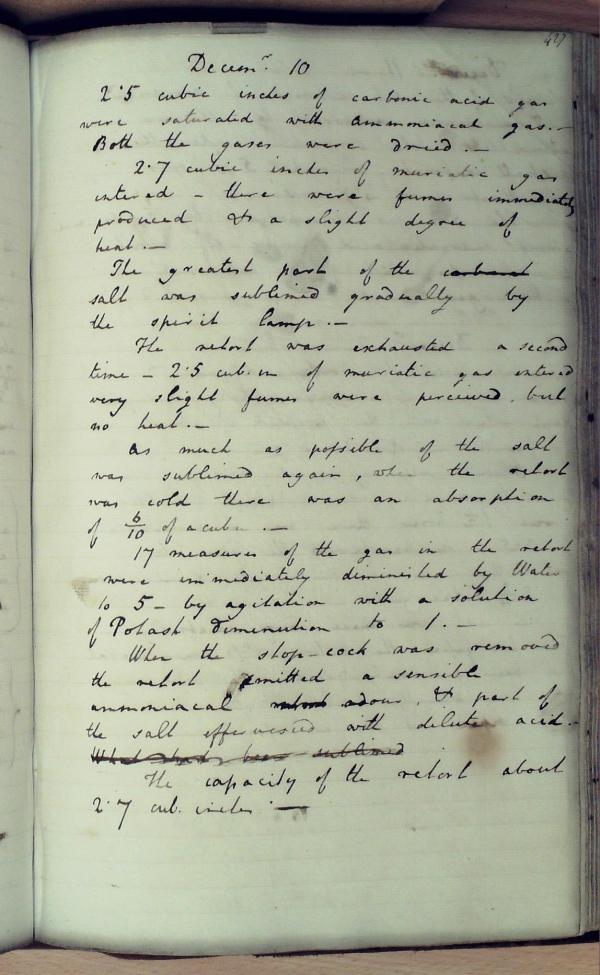 427
Decemr. 10
2.5 cubic inches of carbonic acid gas
were saturated with ammoniacal gas.-
Both the gases were dried.-
2.7 cubic inches of muriatic gas
entered - there were fumes immediately
produced & a slight degree of
heat.-
The greatest part of the carbonat
salt was sublimed gradually by
the spirit lamp.-
The retort was exhausted a second
time - 2.5 cub. in of muriatic gas entered
very slight fumes were perceived, but
no heat.-
as much as possible of the salt
was sublimed again, when the retort
was cold there was an absorption
of 6/10 of a cube.-
17 measures of the gas in the retort
were immediately diminished by Water
to 5 - by agitation with a solution
of Potash Diminution to 1.-
When the stop-cock was removed
the retort emitted a sensible
ammoniacal odour, & part of
the salt effervesced with dilute acid.-
What had been sublimed
The capacity of the retort about
2.7 cub. inches.-